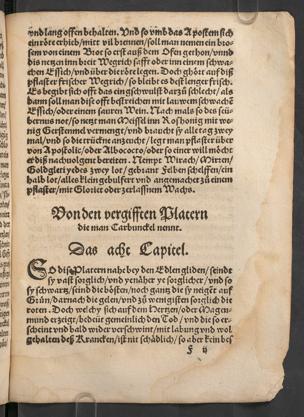 vnd lang offen behalten. Vnd so vmb das Apostem sich
ein röte erhieb / mitt vil brennen / soll man nemen ein bro-
sen von einem Brot so erst auß dem Ofen gethon / vnnd
dis netzn inn breit Wegrich safft oder inn einem schwa-
chen Essich / vnd über die röte legen. Doch ghört auf diß
pflaster frischer Wegrich / so bleibt es dest lenger frisch.
Es begibt sich offt das ein gschwulst darzů schlecht / als
dann soll man dise offt bestreichen mit lauwem schwachẽ
Essich / oder einem sauren Wein. Nach mals so des seü-
bernus not / so netz man Meissel inn Roßhonig mit we-
nig Gerstenmel vermengt / vnd braucht sy alle tag zwey
mal / vnd so die trücknẽ anzucht / legt man pflaster über
von Apostolic / oder Albocoro / oder so einer will möcht
er diß nachuolgent bereiten. Nempt Mirach / Mirten /
Goldgletj yedes zwey lot / gebrant Felben schelffen / ein
halb lot / alles klein gebulfert vnd angemacht zů einem
pflaster / mit Gloriet oder zerlassnem Wachs.
Von den vergifften Platern
die man Carbunckel nennt.
Das acht Capitel.
SO dise Platern nahe bey den Edlen gliden / seindt
sy vast sorglich / vnd ye näher ye sorglicher / vnd so
sy schwartz / seind die bösten / noch gantz die sy neigt auf
Grün / darnach die gelen / vnd zů wenigisten sorglich die
roten. Doch welchy sich auf dem Hertzen / oder Magen-
mund erzeigt / bedeüt gemeinlich den Tod / vnd die so er-
scheint vnd bald wider verschwint / mit labung vnd wol
gehalten deß Krancken / ist nit schädlich / so aber kein bes
F ij